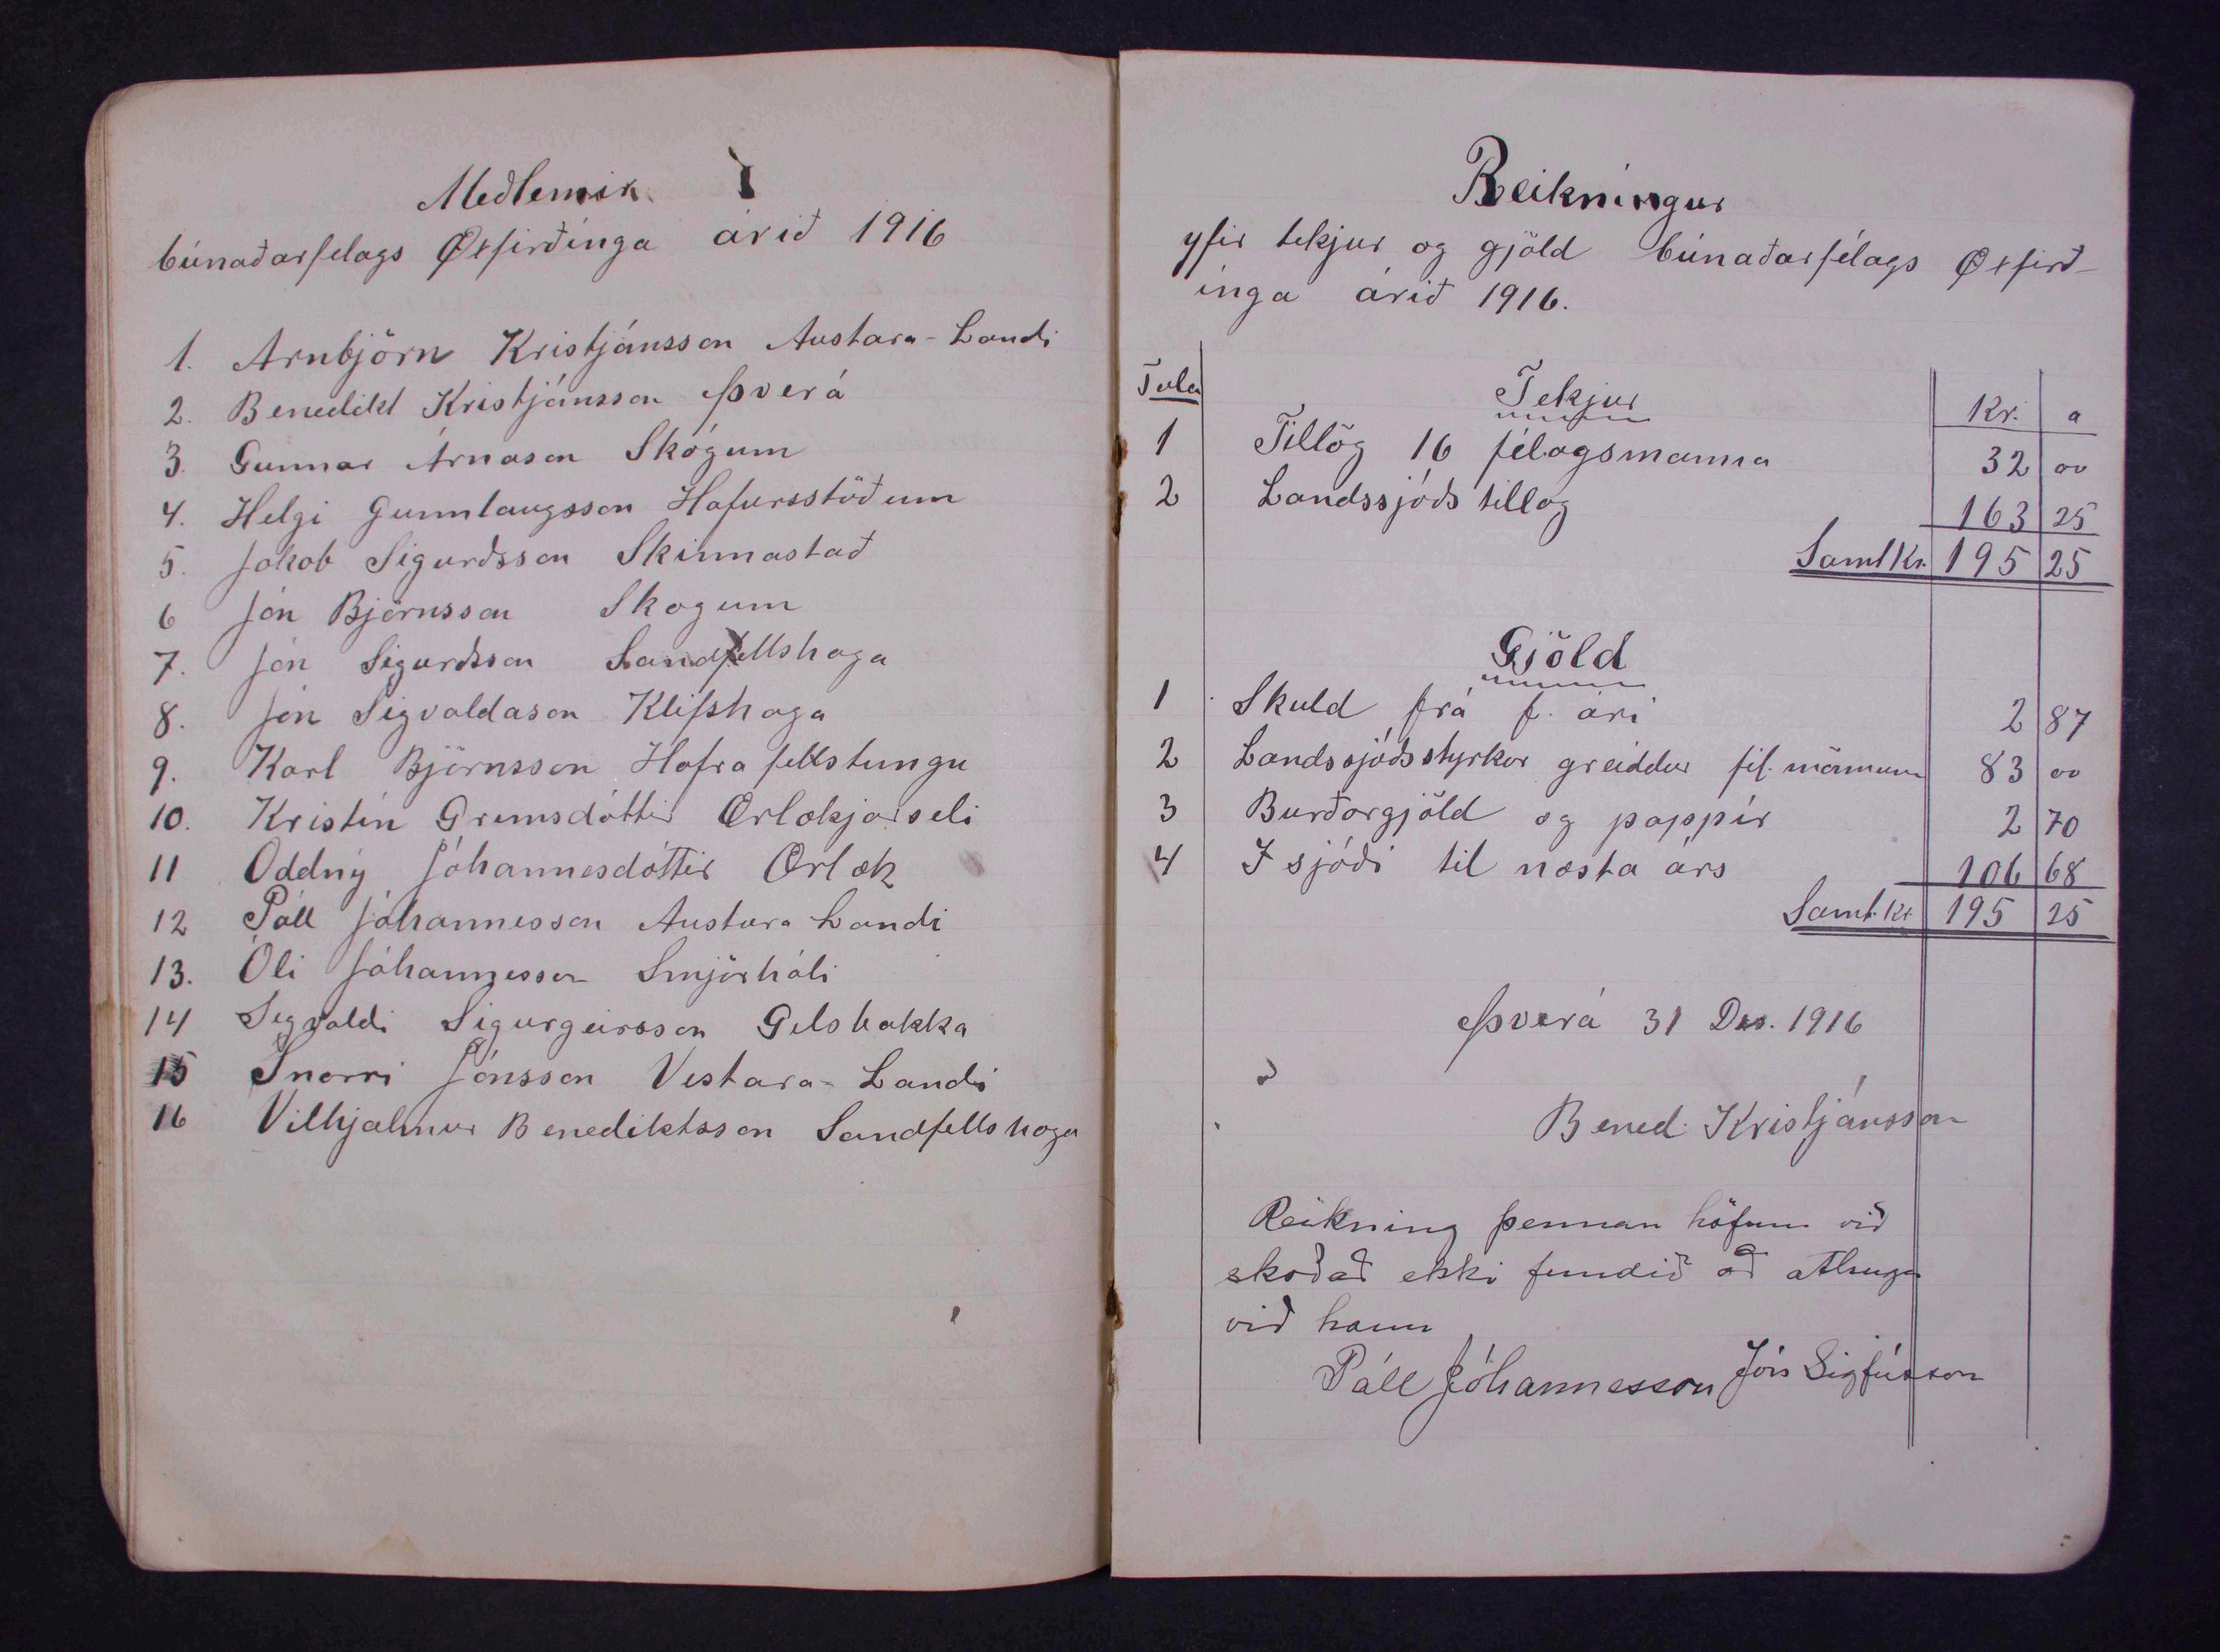 Meðlemir
búnaðarfelags Øxfirðinga árið 1916
1. Arnbjörn Kristjánsson Austara-Landi
2. Benedikt Kristjánsson Þverá
3. Gunnar Árnason Skógum
4. Helgi Gunnlaugsson Hafursstöðum
5. Jakob Sigurðsson Skinnastað
6 Jón Björnsson Skogum
7. Jón Sigurðsson Sandfellshaga
8. Jón Sigvaldason Klifshaga
9. Karl Björnsson Hafrafellstungu
10. Kristín Grimsdóttir Ærlækjarseli
11 Oddný Jóhannesdóttir Ærlæk
12 Páll Jóhannesson Austara Landi
13. Óli Jóhannesson Smjörhóli
14 Sigvaldi Sigurgeirsson Gilsbakka
15 Snorri Jónsson Vestara-Landi
16 Vilhjalmur Benediktsson Sandfellshaga
Reikningur
yfir tekjur og gjöld búnaðarfélags Øxfirð-
inga árið 1916.
Tala Tekjur Kr. a
1 Tillög 16 félagsmanna 32 00
2 Landssjóðs tillag 163 25
Samt Kr. 195 25
Gjöld
1 Skuld frá f. ári 2 87
2 Landssjóðsstyrkur greiddur fél. mönnum 83 00
3 Burðargjöld og pappír 2 70
4 I sjóði til næsta árs 106 68
Samt. Kr. 195 25
Þverá 31 Des. 1916
Bened. Kristjánsson
Reikning þennan höfum við
skoðað ekki fundið að athuga
við hann
Páll Jóhannesson Jón Sigfússon